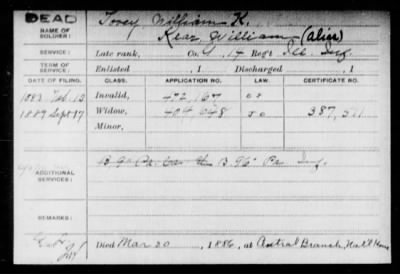 DEAD
NAME OF SOLDIER: Torey William K.
Kear, William (alias)
SERVICE: Late rank, Co. G, 14 Reg't Ill. Inf.
TERM OF SERVICE: Enlisted , 1 Discharged , 1
DATE OF FILING. CLASS. APPLICATION NO. LAW. CERTIFICATE NO.
1883 Feb. 13 Invalid, 472 167
1889 Sept 17 Widow, 404 048 387,511
Minor,
ADDITIONAL SERVICES: B 96" Pa. Inf.
REMARKS:
Died Mar 20, 1886, at Central Branch, Nat'l Home